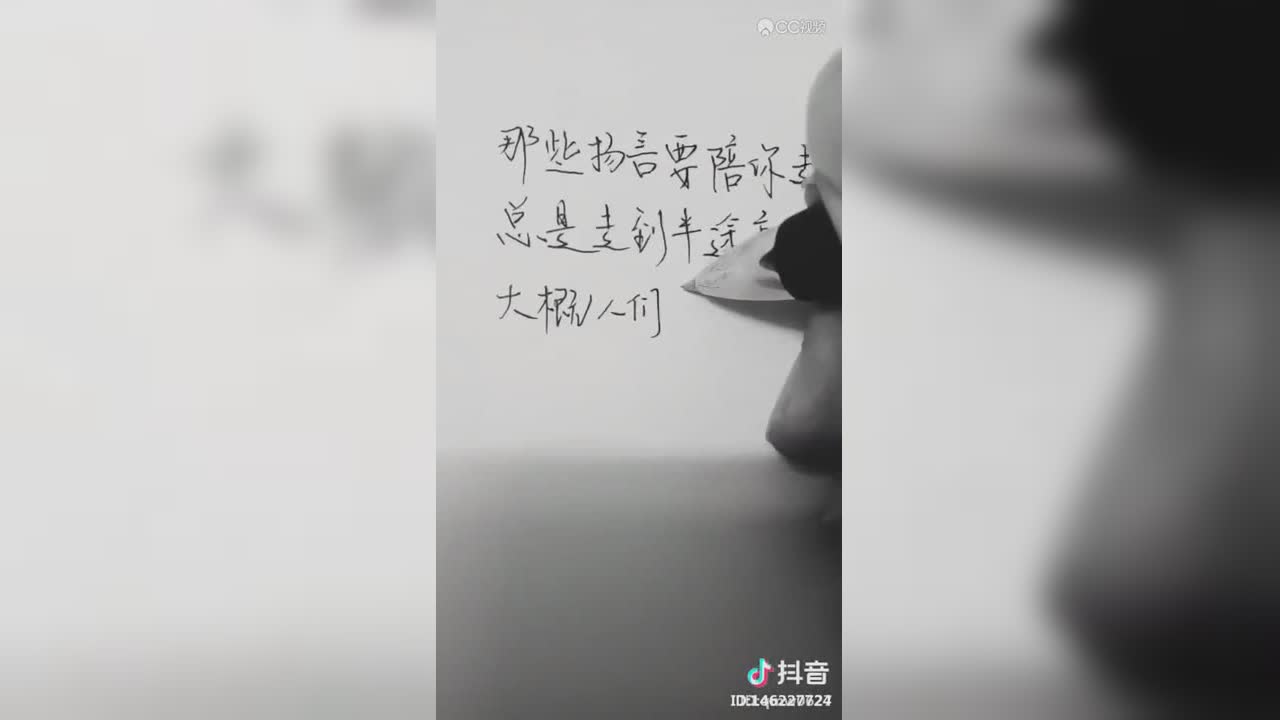 CC视频
那些扬言要陪你走
总是走到半途
大概人们
抖音